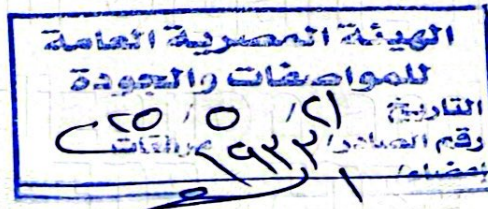 الهيئة المصرية العامة
للمواصفات والجودة
التاريخ ٢١ / ٥ / ٢٠٢٥
رقم الصادر/ مرفقات
إمضاء/